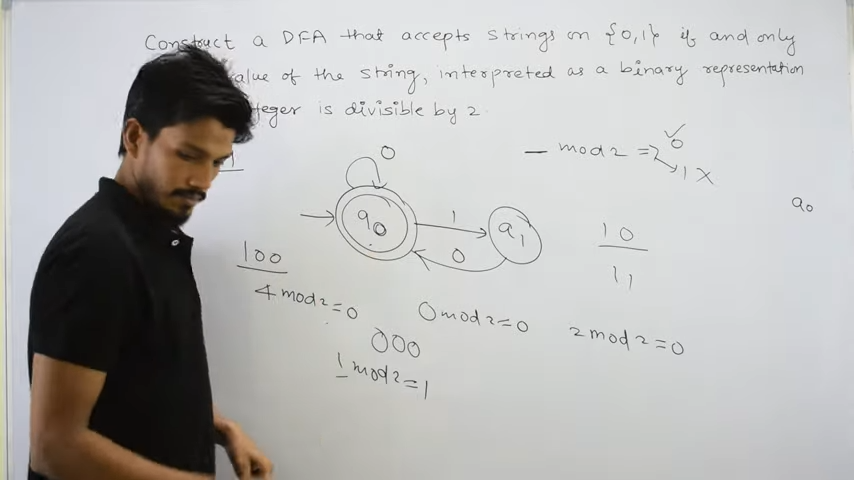 Construct a DFA that accepts strings on {0,1} if and only
value of the string, interpreted as a binary representation
teger is divisible by 2.
1
0
— mod 2 =
0
1 X
q0
q0
1
q1
0
10
11
100
4 mod 2 = 0
0 mod 2 = 0
2 mod 2 = 0
000
1 mod 2 = 1